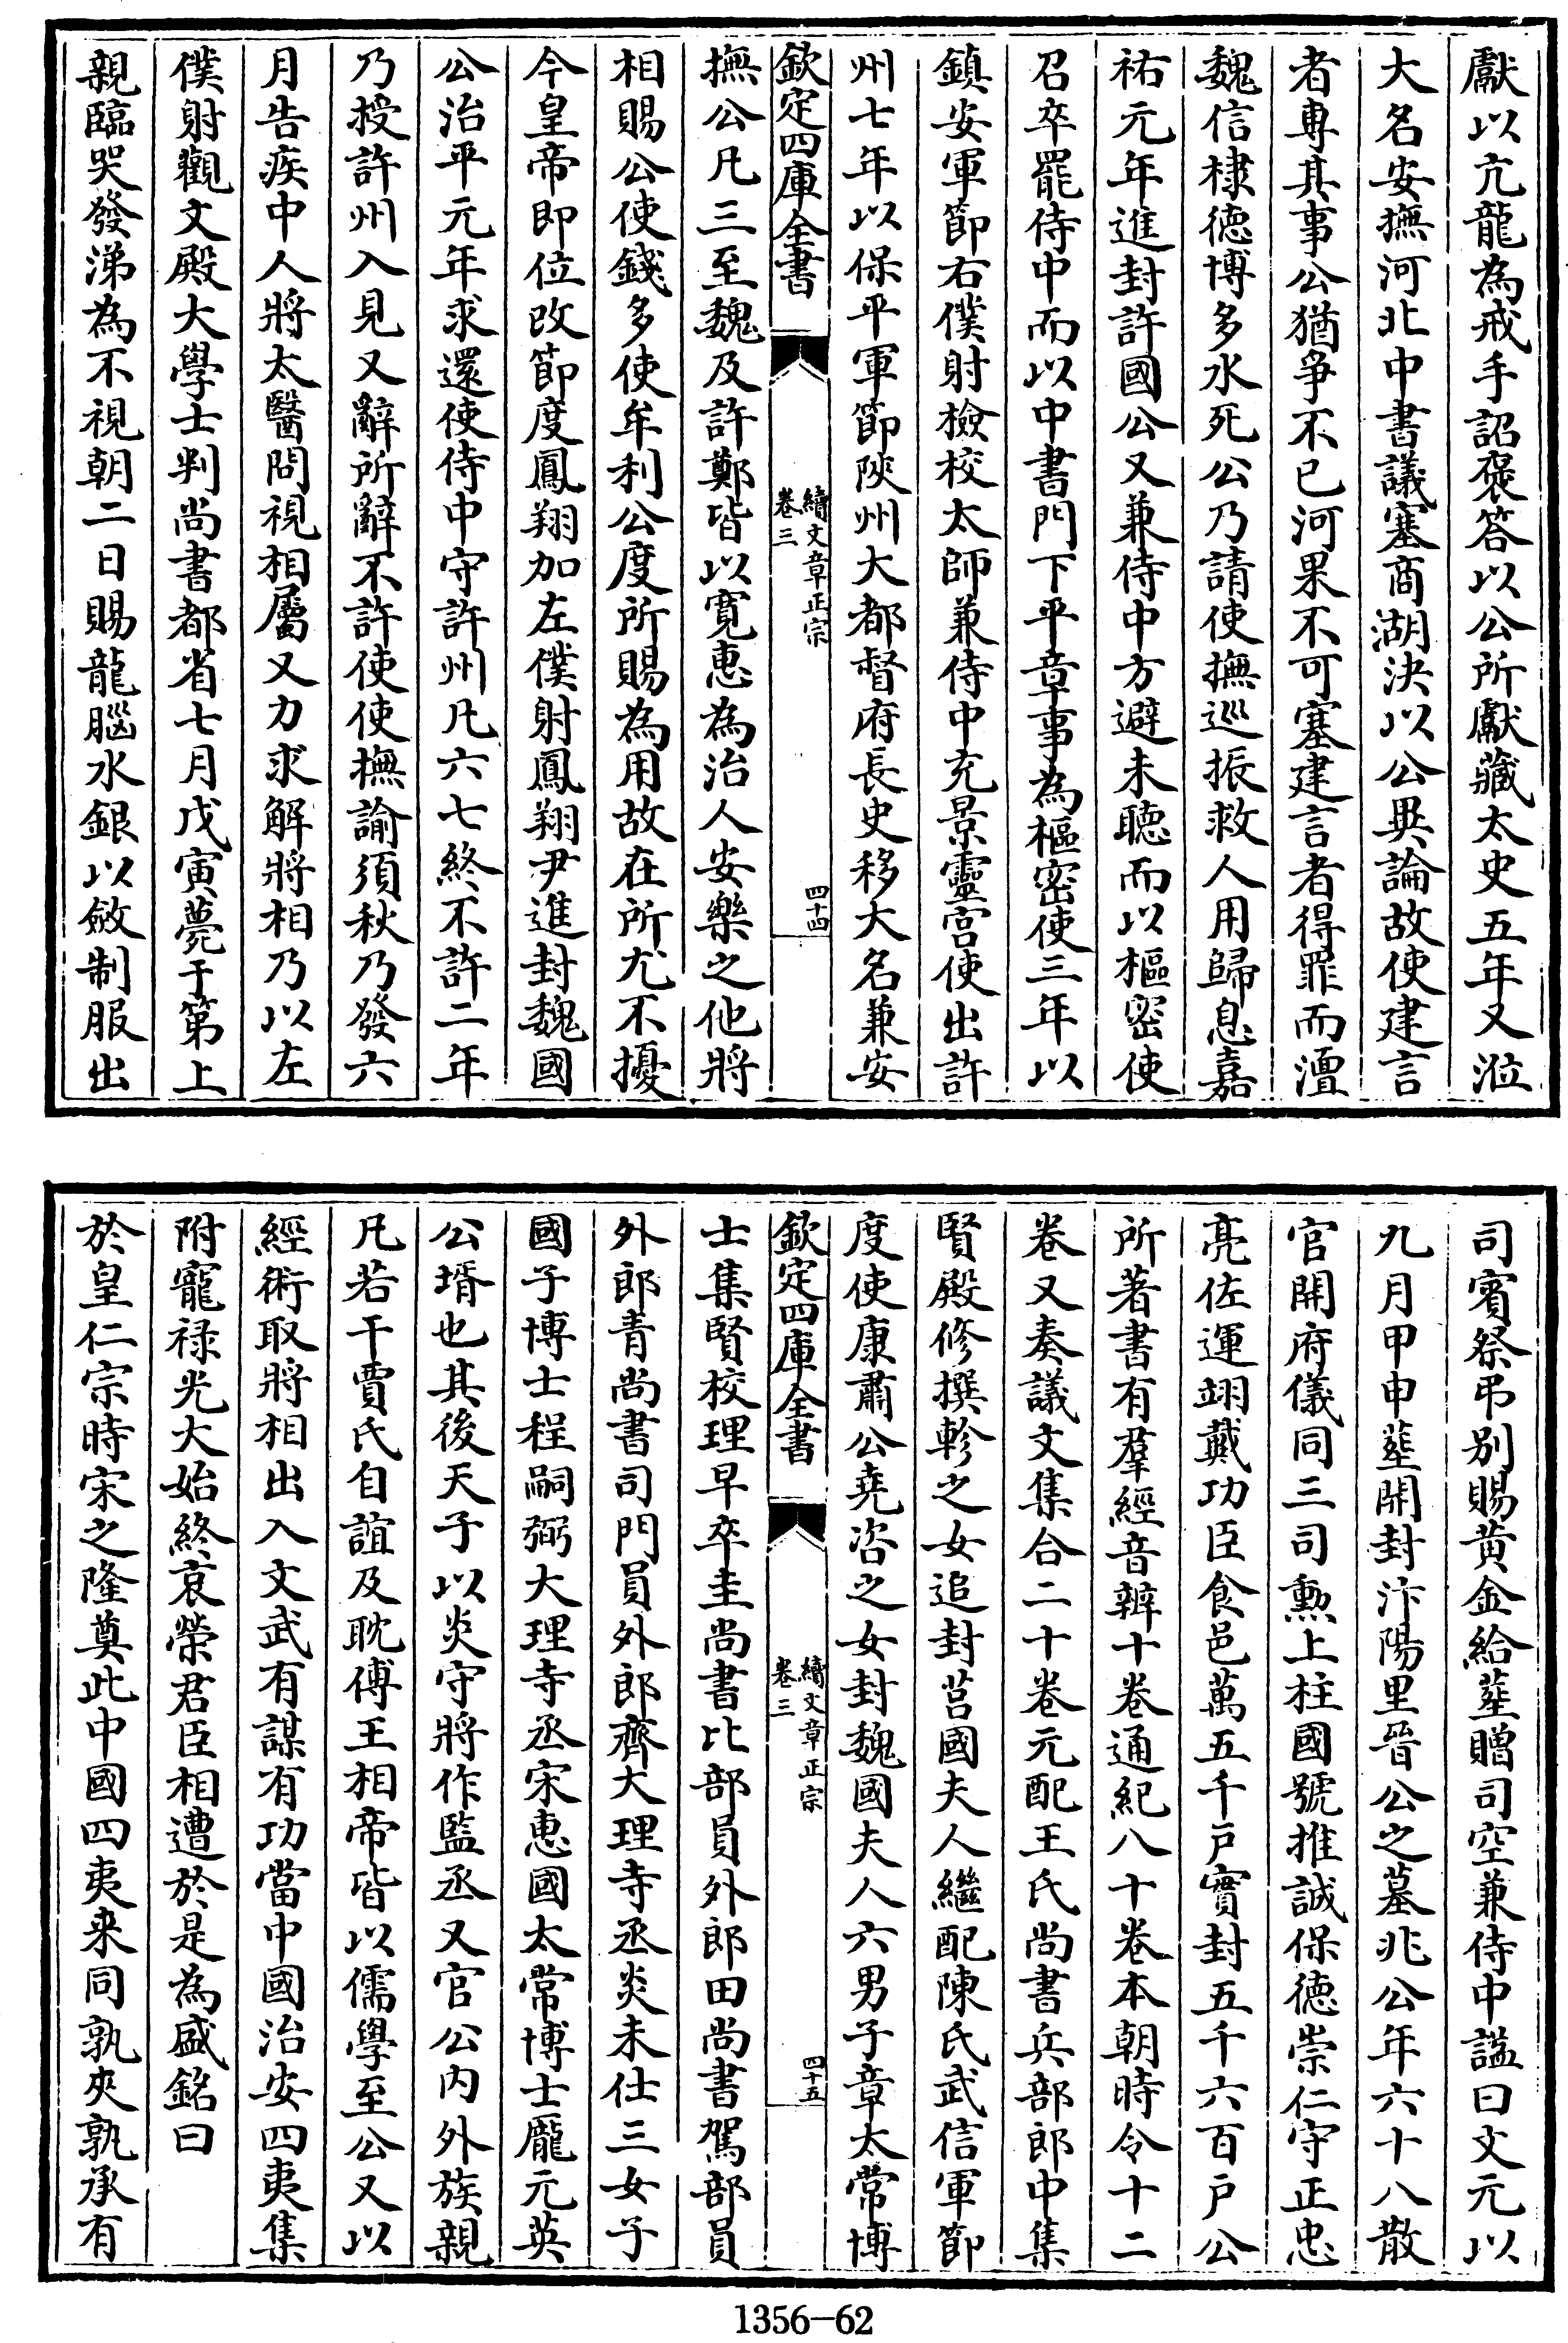 獻以亢龍為戒手詔褒答以公所獻藏太史五年又涖
大名安撫河北中書議塞商湖決以公異論故使建言
者專其事公猶爭不已河果不可塞建言者得罪而澶
魏信棣德博多水死公乃請使撫巡振救人用歸息嘉
祐元年進封許國公又兼侍中方避未聽而以樞密使
召卒罷侍中而以中書門下平章事為樞密使三年以
鎮安軍節右僕射檢校太師兼侍中充景靈宮使出許
州七年以保平軍節陝州大都督府長史移大名兼安
欽定四庫全書
續文章正宗
卷三
四十四
撫公凡三至魏及許鄭皆以寬惠為治人安樂之他將
相賜公使錢多使牟利公度所賜為用故在所尤不擾
今皇帝即位改節度鳳翔加左僕射鳳翔尹進封魏國
公治平元年求還使侍中守許州凡六七終不許二年
乃授許州入見又辭所辭不許使使撫諭須秋乃發六
月告疾中人將太醫問視相屬又力求解將相乃以左
僕射觀文殿大學士判尚書都省七月戊寅薨于第上
親臨哭發涕為不視朝二日賜龍腦水銀以斂制服出
司賓祭弔別賜黄金給葬贈司空兼侍中諡曰文元以
九月甲申葬開封汴陽里晉公之墓兆公年六十八散
官開府儀同三司勲上柱國號推誠保德崇仁守正忠
亮佐運翊戴功臣食邑萬五千戸實封五千六百戸公
所著書有羣經音辨十卷通紀八十卷本朝時令十二
卷又奏議文集合二十卷元配王氏尚書兵部郎中集
賢殿修撰軫之女追封莒國夫人繼配陳氏武信軍節
度使康肅公堯咨之女封魏國夫人六男子章太常博
欽定四庫全書
續文章正宗
卷三
四十五
士集賢校理早卒圭尚書比部員外郎田尚書駕部員
外郎青尚書司門員外郎齊大理寺丞炎未仕三女子
國子博士程嗣弼大理寺丞宋惠國太常博士龎元英
公壻也其後天子以炎守將作監丞又官公内外族親
凡若干賈氏自誼及耽傅王相帝皆以儒學至公又以
經術取將相出入文武有謀有功當中國治安四夷集
附寵禄光大始終哀榮君臣相遭於是為盛銘曰
於皇仁宗時宋之隆奠此中國四夷来同孰夾孰承有
1356-62